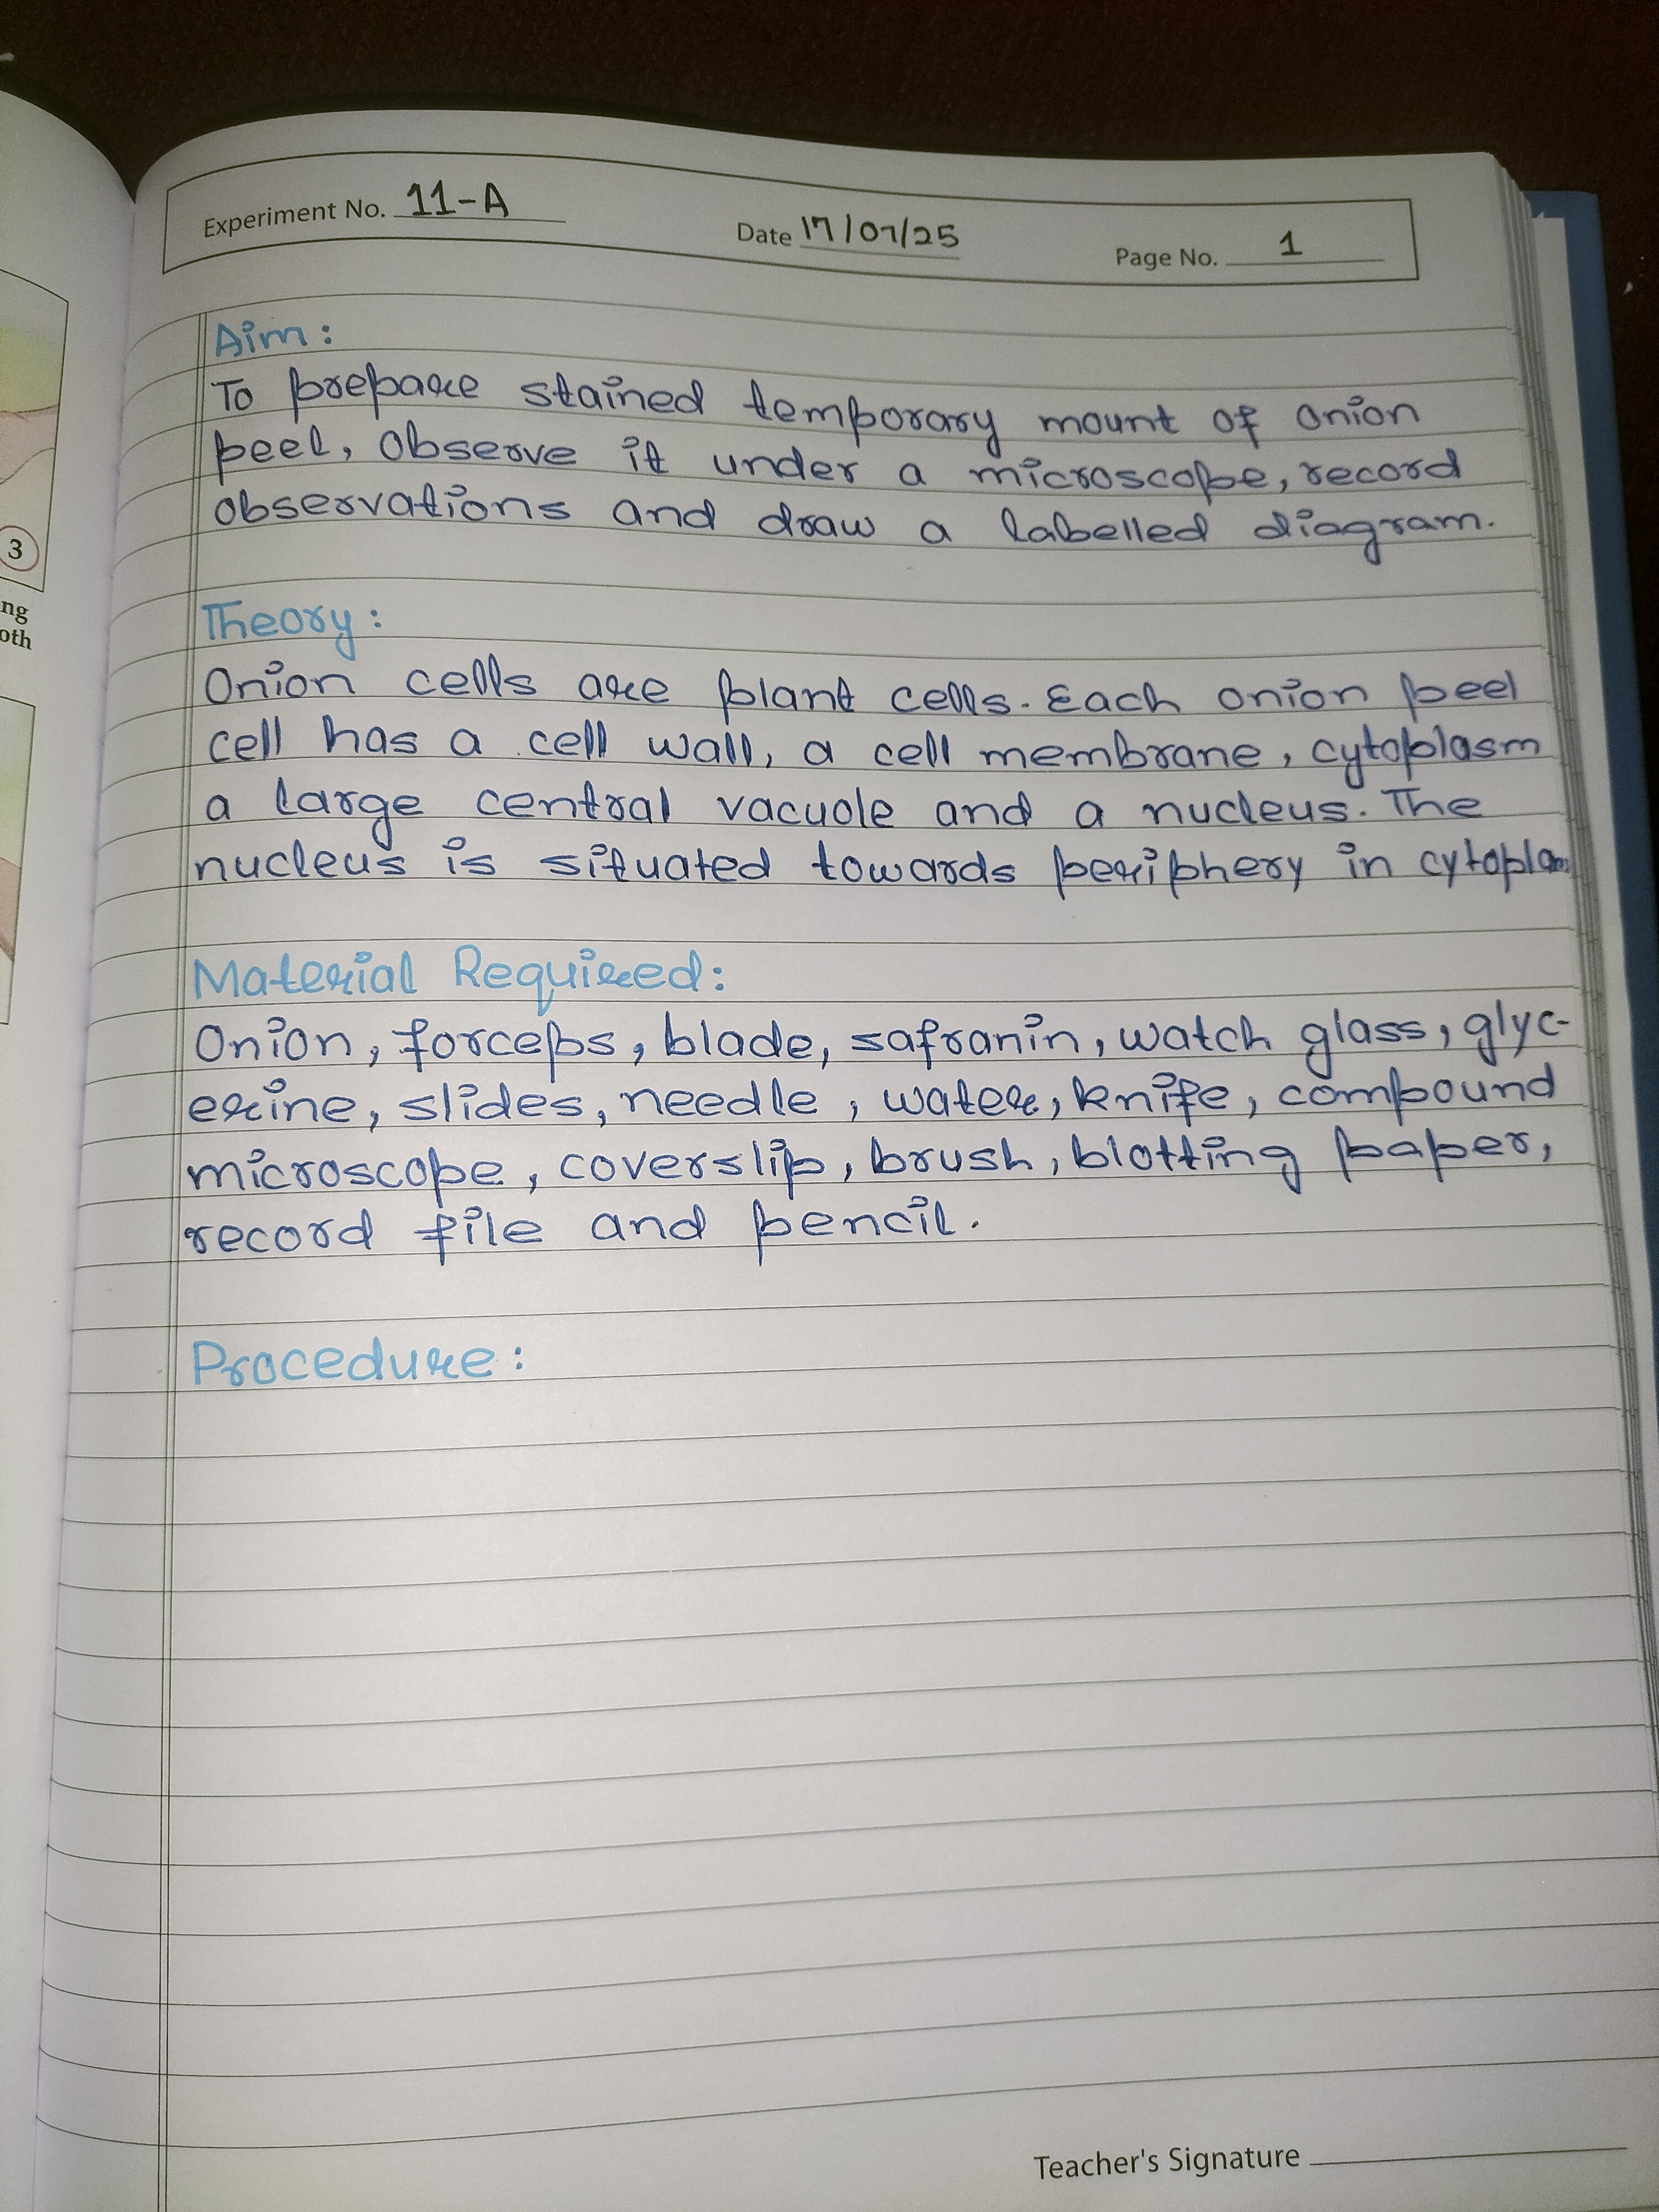 Experiment No. 11-A
Date 17/07/25
Page No. 1
Aim:
To prepare stained temporary mount of onion
peel, observe it under a microscope, record
observations and draw a labelled diagram.
Theory:
Onion cells are plant cells. Each onion peel
cell has a cell wall, a cell membrane, cytoplasm
a large central vacuole and a nucleus. The
nucleus is situated towards periphery in cytoplasm
Material Required:
Onion, forceps, blade, safranin, watch glass, glyc-
erine, slides, needle, water, knife, compound
microscope, coverslip, brush, blotting paper,
record file and pencil.
Procedure:
Teacher's Signature
3
ng
oth